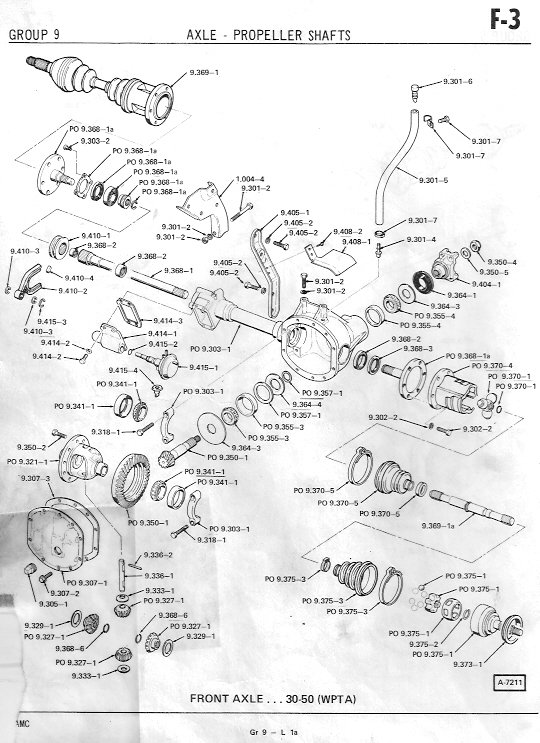 GROUP 9 AXLE - PROPELLER SHAFTS F-3
9.369-1
9.301-6
PO 9.368-1a
9.303-2
PO 9.368-1a
PO 9.368-1a
PO 9.368-1a
PO 9.368-1a
1.004-4
9.301-2
9.301-7
9.301-7
9.301-5
9.405-1
9.405-2
9.405-2
9.408-2
9.408-1
9.301-7
9.301-4
9.301-2
9.301-2
9.410-1
9.368-2
9.410-3
9.368-2
9.368-1
9.405-2
9.405-2
9.301-2
9.301-2
9.350-4
9.350-5
9.404-1
9.364-1
9.364-3
PO 9.355-4
PO 9.355-4
9.410-4
9.410-2
9.415-3
9.410-3
9.414-3
9.414-1
9.415-2
9.414-2
9.414-2
PO 9.303-1
9.368-2
9.368-3
PO 9.368-1a
PO 9.370-4
PO 9.370-1
PO 9.370-1
9.415-4
9.415-1
PO 9.341-1
PO 9.303-1
PO 9.341-1
PO 9.357-1
9.364-4
PO 9.357-1
9.302-2
9.302-2
9.318-1
PO 9.355-3
PO 9.355-3
9.364-3
PO 9.350-1
9.350-2
PO 9.321-1
9.307-3
PO 9.341-1
PO 9.341-1
PO 9.370-5
PO 9.370-5
PO 9.370-5
9.369-1a
PO 9.350-1
PO 9.303-1
9.318-1
9.336-2
9.336-1
PO 9.307-1
9.307-2
9.305-1
9.333-1
PO 9.327-1
PO 9.375-3
PO 9.375-3
PO 9.375-3
PO 9.375-1
PO 9.375-1
9.329-1
PO 9.327-1
9.368-6
9.368-6
PO 9.327-1
9.329-1
PO 9.375-1
9.375-2
PO 9.375-1
9.373-1
PO 9.327-1
9.333-1
A-7211
FRONT AXLE . . . 30-50 (WPTA)
AMC
Gr 9 - L 1a